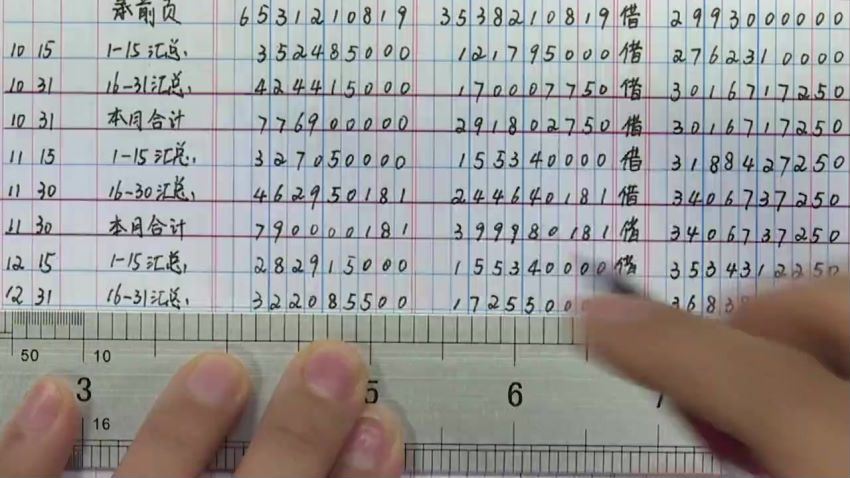 承前页 6531210819 3538210819 借 2993000000
10 15 1-15汇总, 352485000 121795000 借 2762310000
10 31 16-31汇总, 424415000 170007750 借 3016717250
10 31 本月合计 776900000 291802750 借 3016717250
11 15 1-15汇总, 327050000 155340000 借 3188427250
11 30 16-30汇总, 462950181 244640181 借 3406737250
11 30 本月合计 790000181 399980181 借 3406737250
12 15 1-15汇总, 282915000 155340000 借 3534312250
12 31 16-31汇总, 322085500
50 10
3 5 6
16